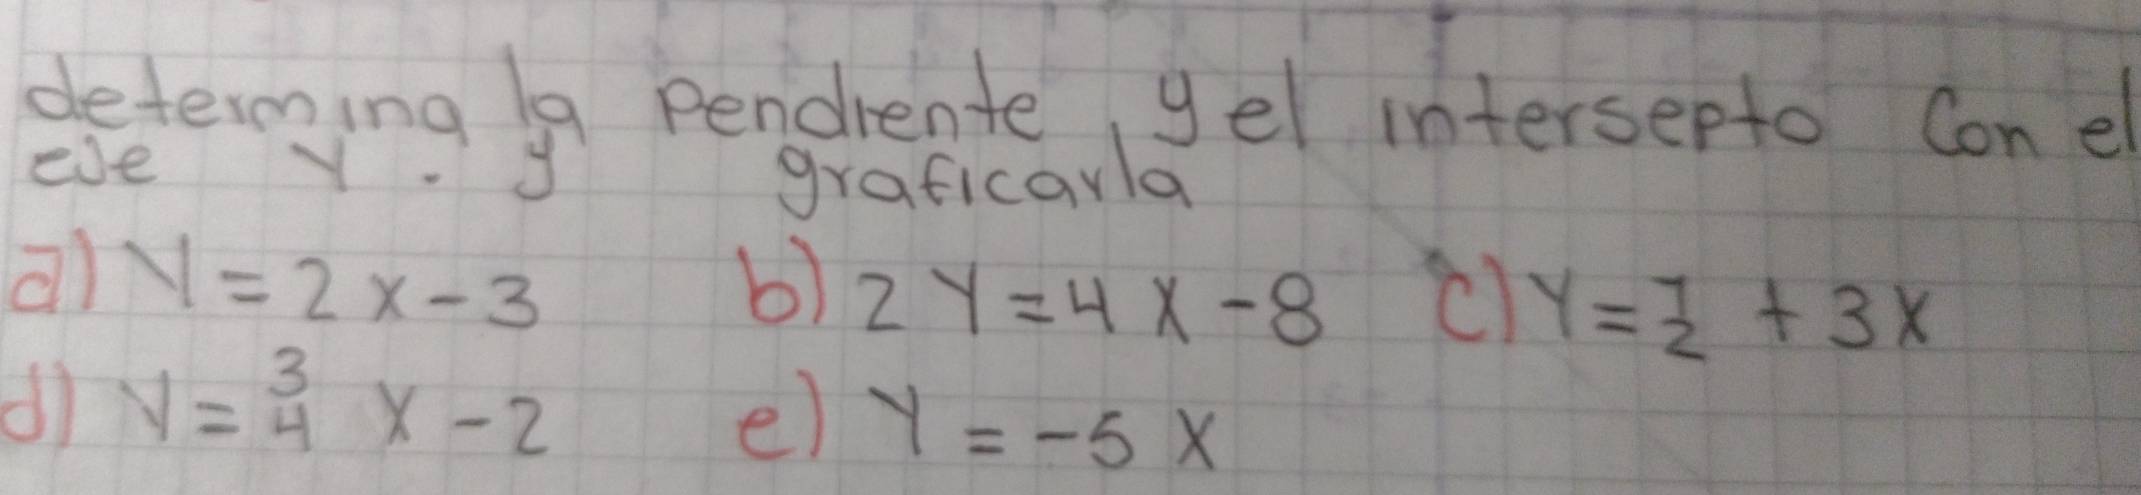 determina la pendiente, y el intersepto con el
eje Y. y graficarla
a) Y = 2x - 3 b) 2Y = 4X - 8 c) Y = 1/2 + 3X
d) Y = 3/4 X - 2 e) Y = -5X